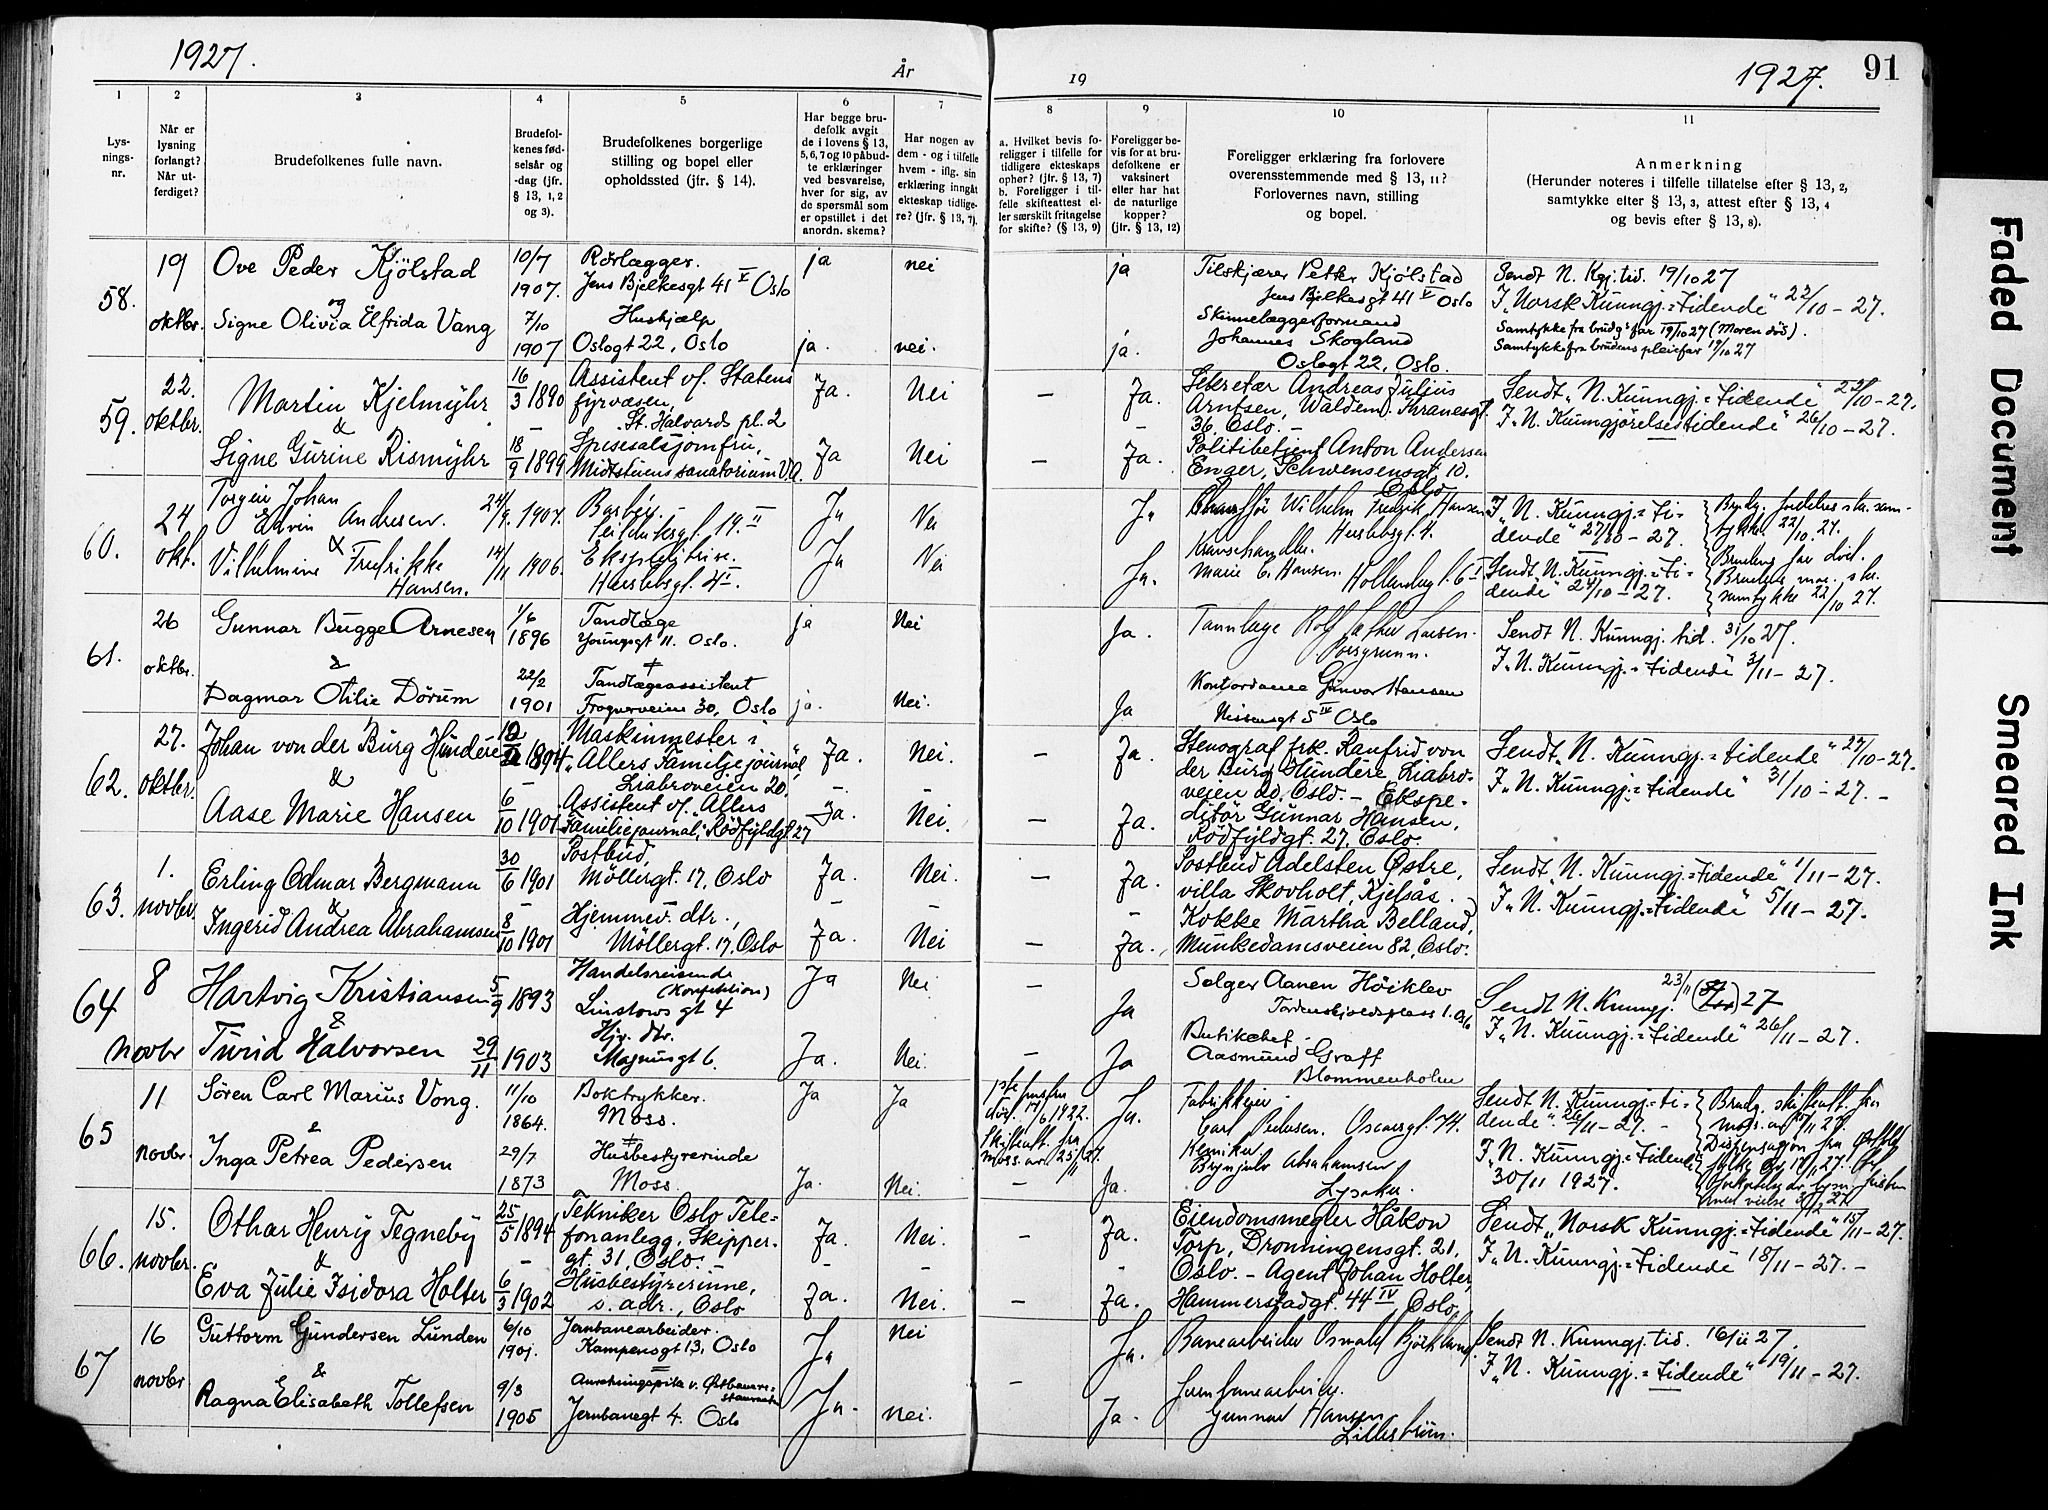 1927.
År
19
1927.
91
1
2
3
4
5
6
7
8
9
10
11
Lys-
nings-
nr.
Når er
lysning
forlangt?
Når ut-
ferdiget?
Brudefolkenes fulle navn.
Brudefol-
kenes fød-
selsår og
-dag (jfr.
§ 13, 1, 2
og 3).
Brudefolkenes borgerlige
stilling og bopel eller
opholdssted (jfr. § 14).
Har begge bru-
defolk avgit
de i lovens § 13,
5, 6, 7 og 10 påbud-
te erklæringer
ved besvarelse,
hver for sig, av
de spørsmål som
er opstillet i det
anordn. skema?
Har nogen av
dem - og i tilfelle
hvem - iflg. sin
erklæring inngått
ekteskap tidlige-
re? (jfr. § 13, 7).
a. Hvilket bevis fo-
religger i tilfelle for
tidligere ekteskaps
ophør? (jfr. § 13, 7)
b. Foreligger i til-
felle skifteattest el-
ler særskilt fritagelse
for skifte? (§ 13, 9)
Foreligger be-
vis for at bru-
defolkene er
vaksinert
eller har hat
de naturlige
kopper?
(jfr. § 13, 12)
Foreligger erklæring fra forlovere
overensstemmende med § 13, 11?
Forlovernes navn, stilling
og bopel.
Anmerkning
(Herunder noteres i tilfelle tillatelse efter § 13, 2,
samtykke efter § 13, 3, attest efter § 13, 4
og bevis efter § 13, 8).
58.
19
oktbr.
Ove Peder Kjölstad
og
Signe Olivia Elfrida Vang
10/7
1907.
7/10
1907
Rörlægger.
Jens Bjelkesgt 41 V Oslo
Hushjælp
Oslogt 22, Oslo
ja
ja.
nei
nei.
ja
ja.
Tilskjærer Petter Kjölstad
Jens Bjelkesgt 41 V Oslo
Skinnelæggerformand
Johannes Skogland
Oslogt 22, Oslo.
Sendt N. Kgj. tid. 19/10 27
I „Norsk Kunngj.=tidende" 22/10 - 27.
Samtykke fra brudg's far 19/10 27 (Moren död).
Samtykke fra brudens pleiefar 19/10 27
59.
22.
oktbr.
Martin Kjelmyhr
&
Signe Gurine Rismyhr
16/3 1890
18/9 1899
Assistent v/. Statens
fyrvæsen,
St. Halvards pl. 2
Spisesalsjomfru,
Midtstuens sanatorium V.A.
Ja.
Ja
Nei
Nei
Ja.
Ja.
Sekretær Andreas Julius
Arntsen, Waldem. Thranesgt.
36, Oslo. -
Politibetjent Anton Andersen
Enger, Schwensensgt. 10.
Oslo
Sendt „N. Kunngj.=tidende" 22/10 - 27.
I „N. Kunngjörelsestidende" 26/10 - 27.
60.
24
okt.
Torgeir Johan
Edvin Andresen.
&
Vilhelmine Fredrikke
Hansen.
24/9. 1907.
14/11 1906.
Ekspeditrise.
Herslebsgt. 4 II.
Ja
Ja
Nei
Nei
Ja
Ja.
Chaufför Wilhelm Fredrik Hansen
Herslebsgt. 4.
Marie C. Hansen.
I „N. Kunngj.=ti=
dende" 27/10 - 27.
Sendt „N. Kunngj.=ti=
dende" 24/10 - 27.
22/10. 27.
Brudens far död.
samtykke 22/10 27.
61.
26
oktbr.
Gunnar Bugge Arnesen
&
Dagmar Otilie Dörum
1/6
1896
22/2
1901
Tandlæge
Youngsgt 11. Oslo.
+
Tandlægeassistent
Frognerveien 30, Oslo
ja
ja.
Nei
Nei.
Ja.
Ja
Tannlæge Rolf Larsen.
Porsgrunn.
Kontordame Gunvor Hansen
Nissensgt 5 IV Oslo
Sendt N. Kunngj. tid. 31/10 27.
I „N. Kunngj.=tidende" 3/11 - 27.
62.
27.
oktbr.
Johan von der Burg Hundere
&
Aase Marie Hansen
1894
6/10 1901
Maskinmester i
„Allers Familiejournal",
Liabroveien 20.
Assistent v/. Allers
Familiejournal, Rödfyldgt. 27
Ja.
Ja.
Nei.
Nei.
Ja.
Ja.
Stenograf frk. Ranfrid von
der Burg Hundere, Liabro-
veien 20, Oslo. - Ekspe-
ditör Gunnar Hansen,
Rödfyldgt. 27, Oslo.
Sendt „N. Kunngj.=tidende" 27/10 - 27.
I „N. Kunngj.=tidende" 31/10 - 27. -
63.
1.
novbr.
Erling Odmar Bergmann
&
Ingerid Andrea Abrahamsen
30/6 1901
8/10 1901
Postbud,
Möllergt. 17, Oslo
Hjemmev. dtr.,
Möllergt. 17, Oslo
Ja.
Ja.
Nei.
Nei
Ja.
Ja.
Postbud Adelsten Østre,
villa Skovholt, Kjelsås.
Kokke Martha Belland,
Munkedamsveien 82, Oslo.
Sendt „N. Kunngj.=tidende" 1/11 - 27.
I „N. Kunngj.=tidende" 5/11 - 27.
64
8
novbr
Hartvig Kristiansen
&
Turid Halvorsen
5/9 1893
29/11 1903
Handelsreisende
(Konfektion)
Linstows gt 4
Hjv. dtr.
Magnusgt 6.
Ja
Ja.
Nei
Nei.
Ja
Ja
Selger Aanen Höiklev
Tordenskjoldsplass 1. Oslo
Butikchef
Aasmund Graff
Blommenholm
Sendt N. Kunngj. 23/11 27
I „N. Kunngj.=tidende" 26/11 - 27.
65
11
novbr.
Sören Carl Marius Vong.
&
Inga Petrea Pedersen
11/10
1864.
29/7
1873
Boktrykker.
Moss.
+
Husbestyrerinde
Moss.
Ja
Ja.
Ja
Nei.
1ste hustru
död. 17/6 1922.
Skifteatt. fra
Moss av 25/11 27.
Ja.
Ja.
Fabrikkeier
Carl Pedersen. Oscarsgt. 74.
Kemiker
Brynjulv Abrahamsen
Lysaker.
Sendt „N. Kunngj.=ti=
dende". 26/11 - 27. -
I „N. Kunngj.=tidende
30/11 1927.
Brudg. skifteatt. fra
Dispensasjon fra
66.
15.
novbr.
Othar Henry Tegneby
&
Eva Julie Isidora Holter
25/5 1894
6/3 1902
Tekniker Oslo Tele=
fonanlegg, Skipper-
gt. 31, Oslo.
Husbestyrerinne,
s. adr., Oslo
Ja.
Ja.
Nei.
Nei.
Ja.
Ja.
Eiendomsmegler Håkon
Torp, Dronningensgt. 21,
Oslo. - Agent Johan Holter,
Hammerstadgt. 44 IV, Oslo.
Sendt „Norsk Kunngj.=tidende" 15/11 - 27.
I „N. Kunngj.=tidende 18/11 - 27. -
67
16
novbr.
Guttorm Gundersen Lunden
&
Ragna Elisabeth Tollefsen
6/10
1901.
9/3
1905
Jernbanearbeider.
Kampensgt 13, Oslo
Anretningspike v. Østbanere=
stauranten
Jernbanegt 4. Oslo
Ja
Ja.
Nei
Nei.
Ja.
Ja.
Banearbeider Osvald Björklund
Jernbanearbeider
Gunnar Hansen
Lilleström.
Sendt N. Kunngj. tid. 16/11 27.
I „N. Kunngj.=tidende" 19/11 - 27.
Faded Document
Smeared Ink